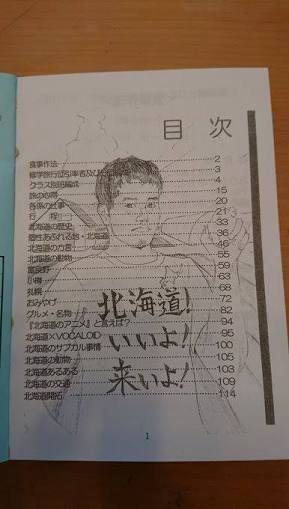 目 次
食事作法 2
修学旅行団引率者及び 3
クラス別班編成 4
旅の心得 15
各係の仕事 20
行 程 21
北海道の歴史 33
個性あふれる地・北海道 36
北海道の方言 46
北海道の動物 55
富良野 59
小樽 63
札幌 68
おみやげ 72
グルメ・名物 82
『北海道のアニメ』と言えば? 94
北海道×VOCALOID 95
北海道のサブカル事情 100
北海道の動物 105
北海道あるある 103
北海道の交通 109
北海道開拓 114
北海道!
いいよ!
来いよ!
1